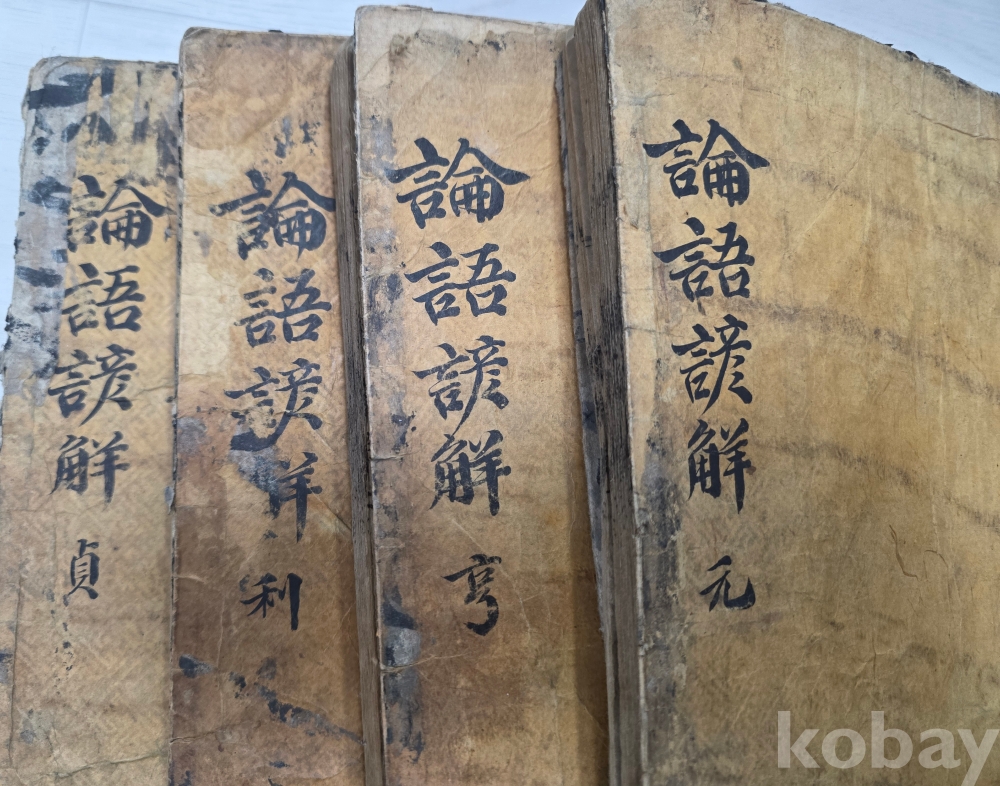 論語諺解 元
論語諺解 亨
論語諺解 利
論語諺解 貞
kobay